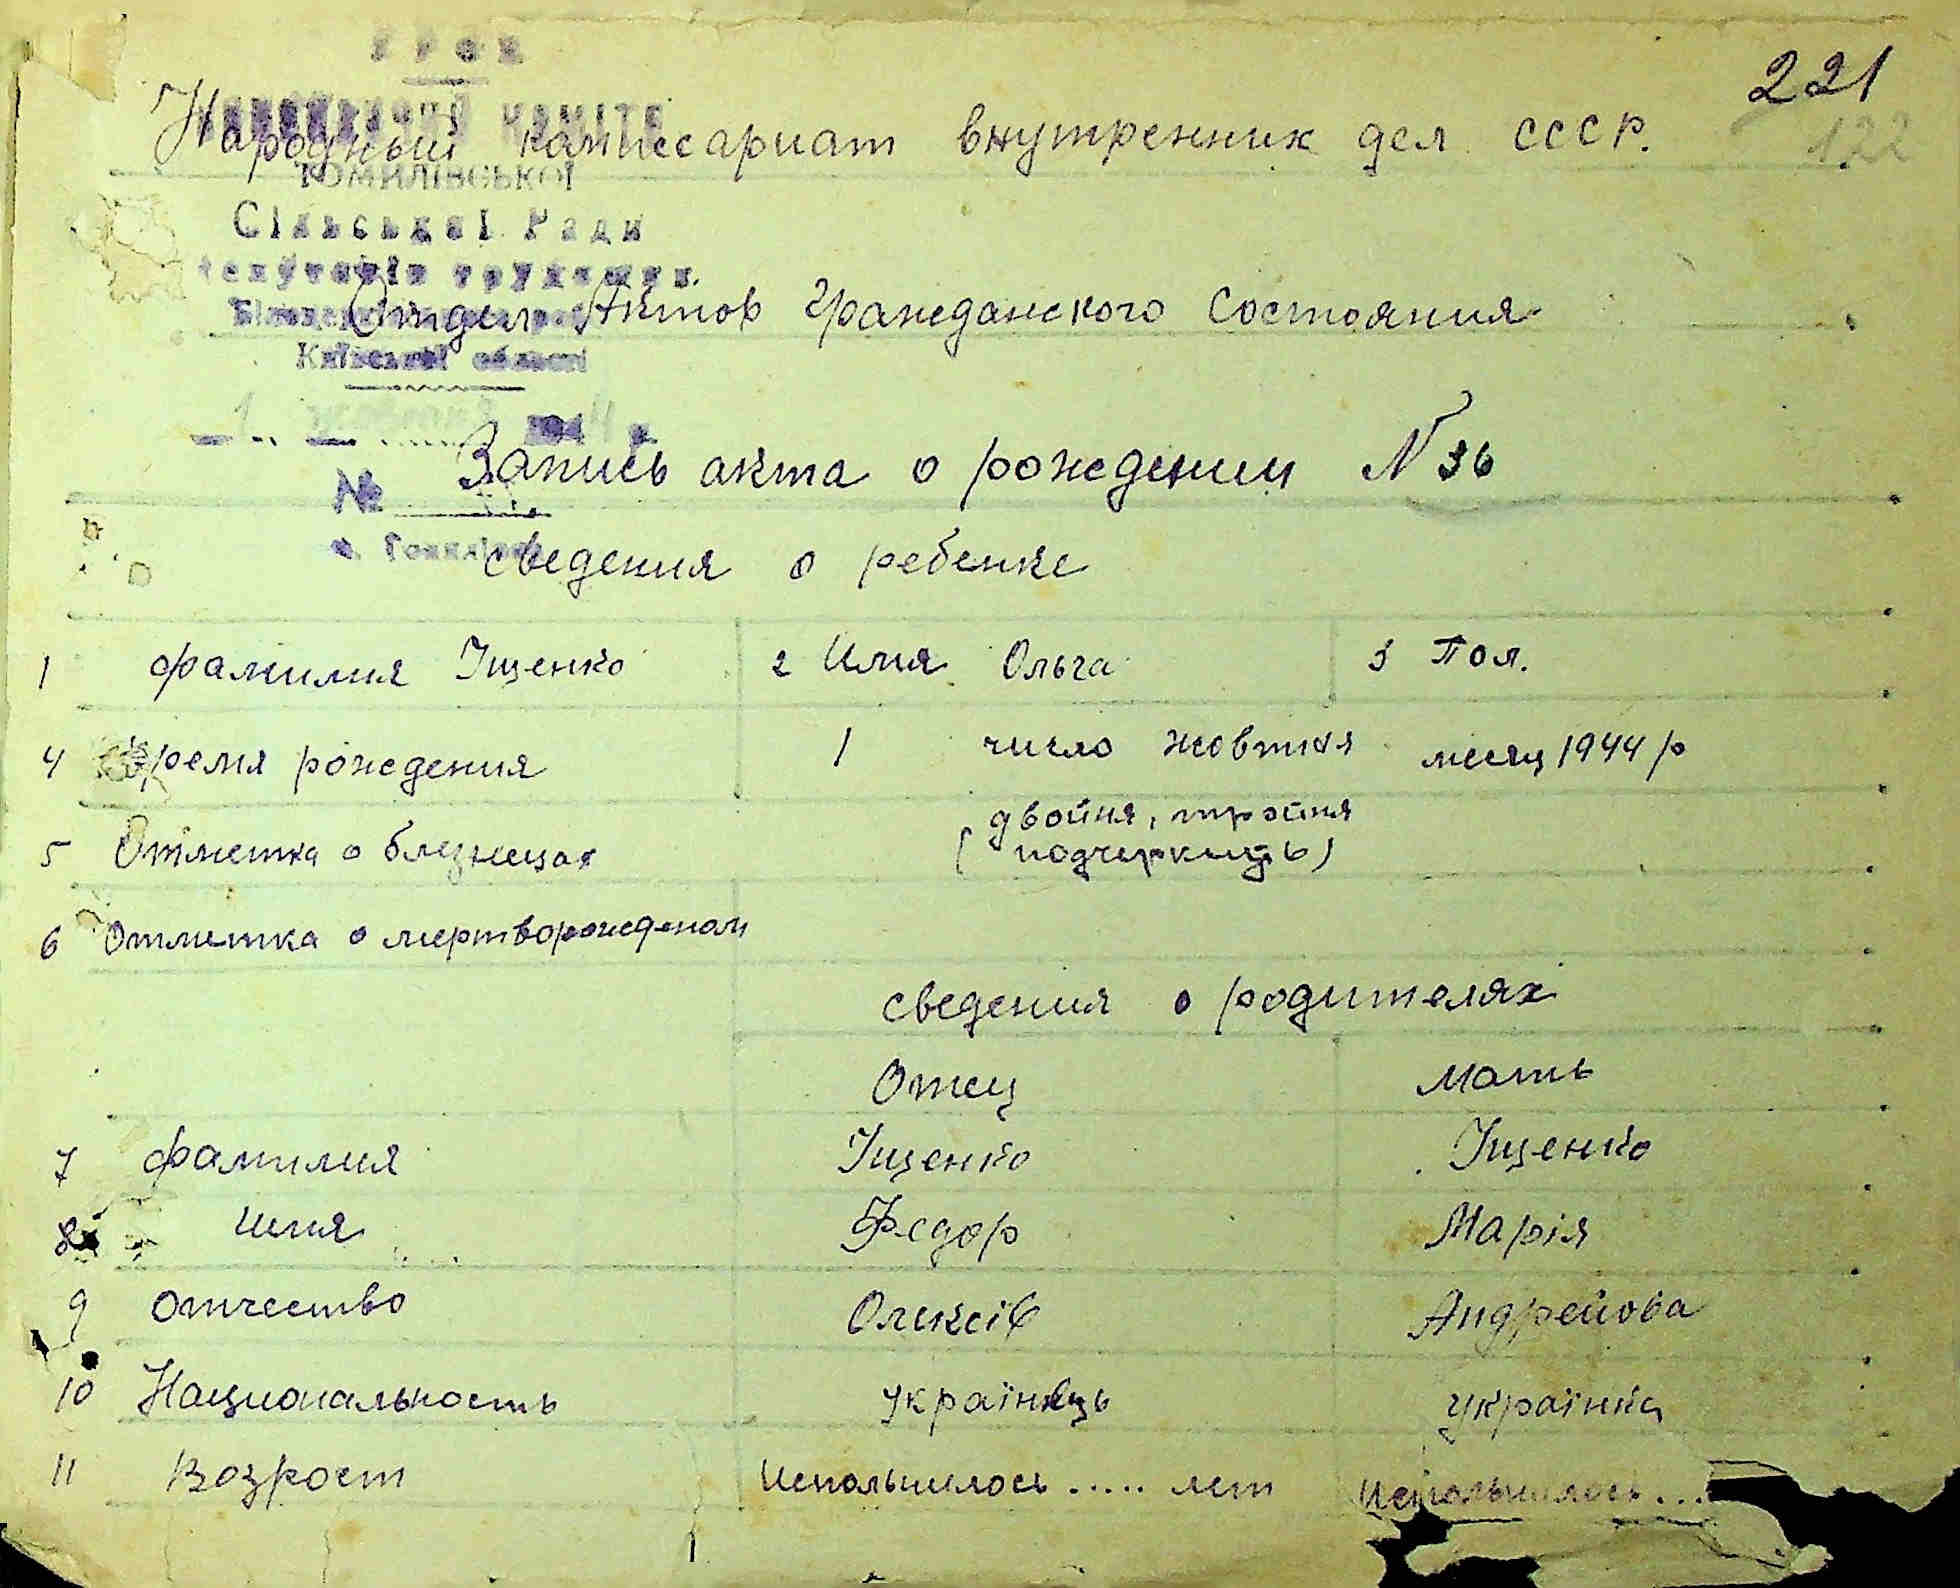 У Р С Р
221
Народный комиссариат внутренних дел СССР.
122
ТОМИЛІВСЬКОЇ
Сільської Ради
депутатів трудящих
Отдел Актов Гражданского Состояния
Київської області
Запись акта о рождении N 36
№
сведения о ребенке
1 фамилия Іщенко 2 Имя Ольга 3 Пол.
4 Время рождения 1 число жовтня месяц 1944 р
5 Отметка о близнецах (двойня, тройня
подчеркнуть)
6 Отметка о мертворожденом
сведения о родителях
Отец Мать
7 фамилия Іщенко Іщенко
8 имя Федор Марія
9 отчество Олексів Андрейова
10 Национальность українець українка
11 Возрост Исполнилось ..... лет Исполнилось ...